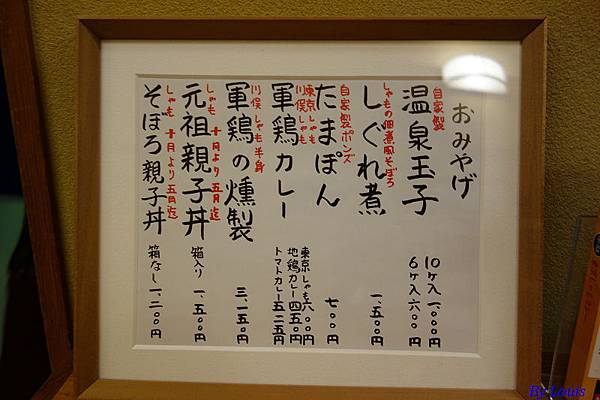 おみやげ
自家製
温泉玉子
10ヶ入 一、〇〇〇円
6ヶ入 六〇〇円
しゃもの佃煮風そぼろ
しぐれ煮
一、五〇〇円
自家製ポンズ
たまぽん
七〇〇円
東京しゃも
川俣しゃも
軍鶏カレー
東京しゃも六〇〇円
地鶏カレー四五〇円
トマトカレー五二五円
川俣しゃも半身
軍鶏の燻製
三、一五〇円
しゃも 十月より五月迄
元祖親子丼
箱入り 一、五〇〇円
しゃも 十月より五月迄
そぼろ親子丼
箱なし 一、二〇〇円
By Louis